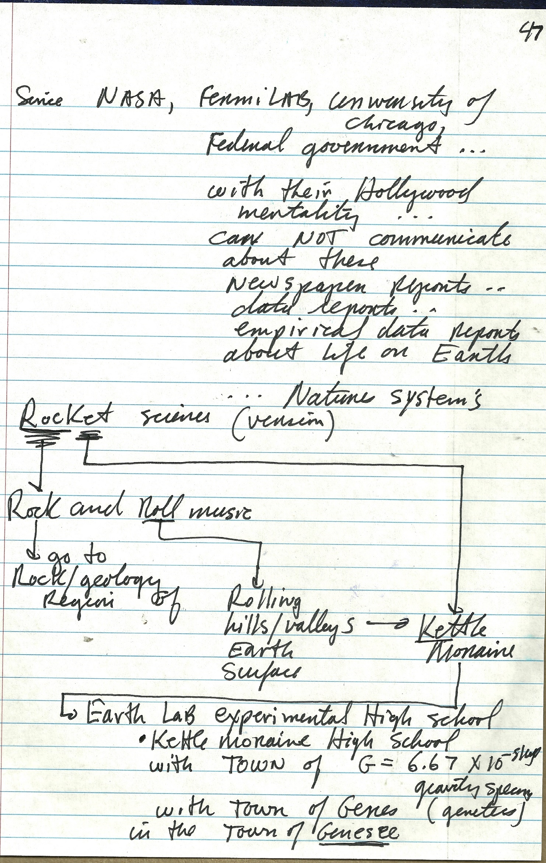 47
Since NASA, FermiLAB, University of
Chicago,
Federal government ...
with their Hollywood
mentality ...
can NOT communicate
about these
Newspaper Reports ..
data reports ..
empirical data Reports
about Life on Earth
... Natures system's
Rocket science (version)
Rock and Roll music
go to
Rock/geology
Region of
Rolling
hills/valleys → Kettle
Earth Moraine
Surface
Earth LAB experimental High school
• Kettle Moraine High School
with TOWN of G = 6.67 X 10
gravity
with Town of Genes (genetics)
in the Town of Genesee